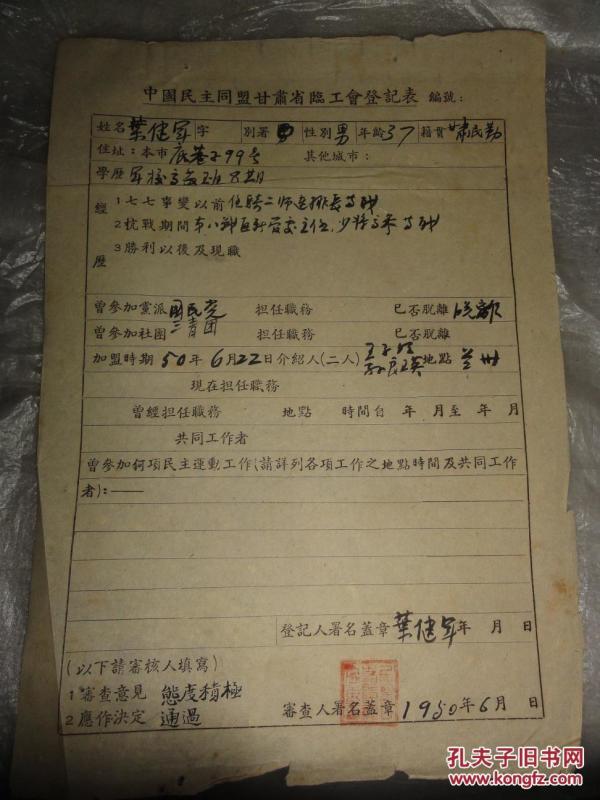 中國民主同盟甘肅省臨工會登記表 編號：
姓名 葉健軍 字 別署 男 性別 男 年齡 37 籍貫 甘肅民勤
住址：本市 底巷子99号 其他城市：
學歷 军校高教班 期
經歷
1 七七事變以前 任騎二师连排長等職
2 抗戰期間 第八戰區 主任，少将高参等職
3 勝利以後及現職
曾參加黨派 國民党 担任職務 已否脱離 脱離
曾參加社團 三青团 担任職務 已否脱離
加盟時期 50年6月22日 介紹人(二人) 地點 兰州
現在担任職務
曾經担任職務 地點 時間自 年 月至 年 月
共同工作者
曾參加何項民主運動工作(請詳列各項工作之地點時間及共同工作
者)：——
登記人署名蓋章 葉健軍 年 月 日
(以下請審核人填寫)
1 審查意見 態度積極
2 應作決定 通過 審查人署名蓋章 1950年6月 日
孔夫子旧书网
www.kongfz.com